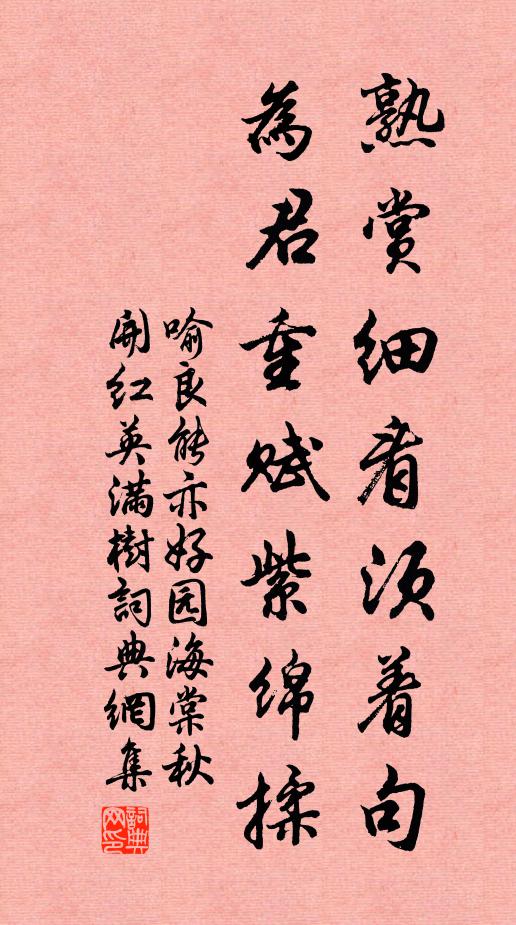 熟赏细看须着句
為君重赋紫绵揉
喻良能亦好园海棠秋
開红英满樹詞典網集
詞典网印